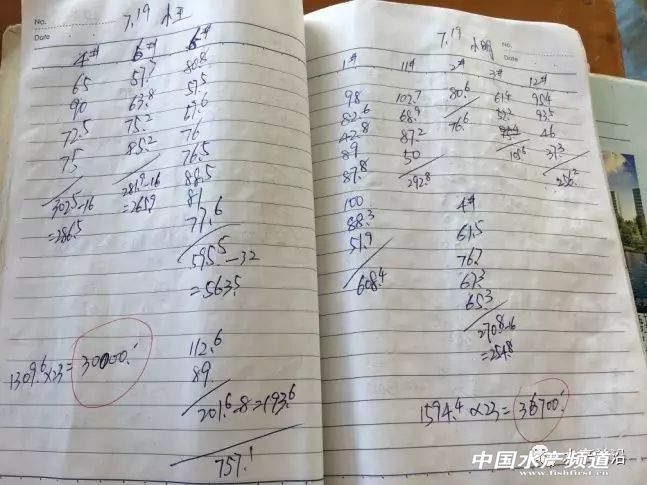 No.
7.19 小王
Date
4#
65
90
72.5
75
302.5-16
=286.5
6#
57.7
63.8
75.2
85.2
281.9-16
=265.9
80.8
57.5
67.6
76
76.5
88.5
77.6
595.5-32
=563.5
112.6
89
201.6-8=193.6
757.1
1309.6×23=30000.
7.19 小明
No.
Date
1#
98
82.6
42.8
89
87.8
100
88.3
51.9
608.4
11#
102.7
68.9
87.2
50
292.8
2#
80.6
76.6
3#
61.4
52.2
105.6
12#
95.4
93.5
46
37.3
256.2
4#
61.5
76.7
67.3
65.3
270.8-16
=254.8
1594.4×23=36700.
中国水产频道
www.fishfirst.cn